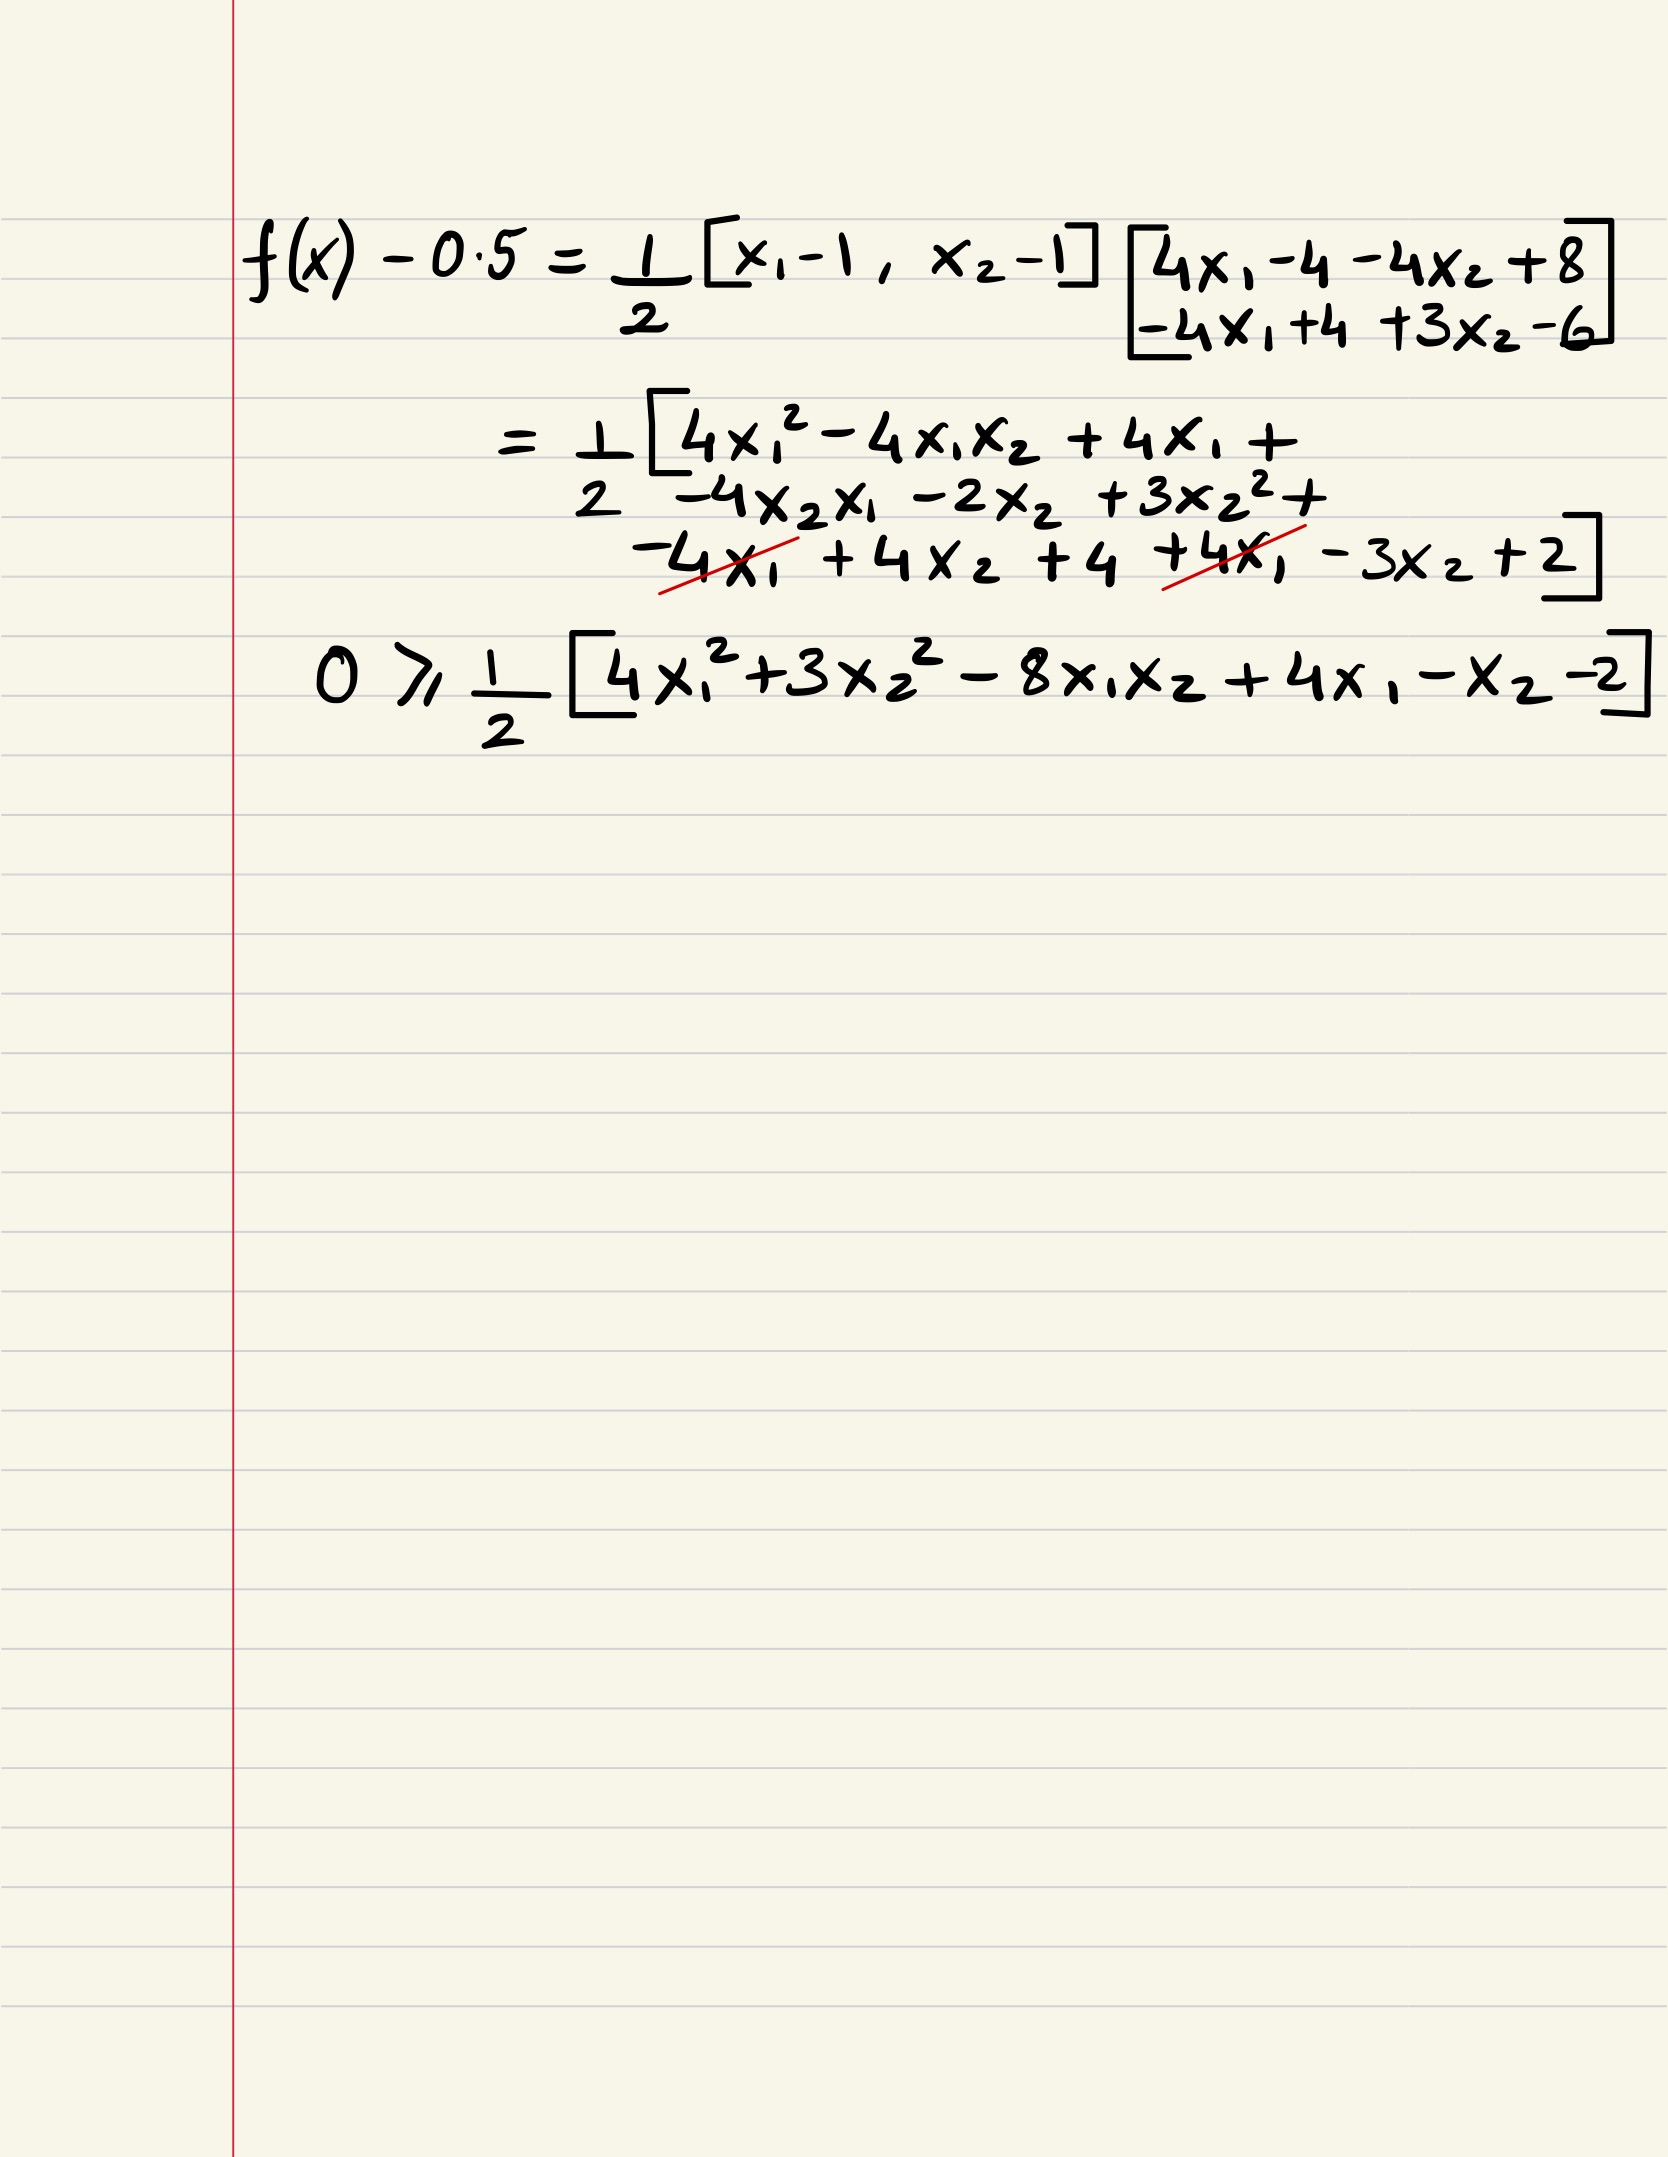 f(x) - 0.5 = 1/2 [x₁-1, x₂-1] [4x₁-4-4x₂+8
-4x₁+4+3x₂-6]
= 1/2 [4x₁² - 4x₁x₂ + 4x₁ +
-4x₂x₁ - 2x₂ + 3x₂² +
-4x₁ + 4x₂ + 4 + 4x₁ - 3x₂ + 2]
0 ⩾ 1/2 [4x₁² + 3x₂² - 8x₁x₂ + 4x₁ - x₂ - 2]